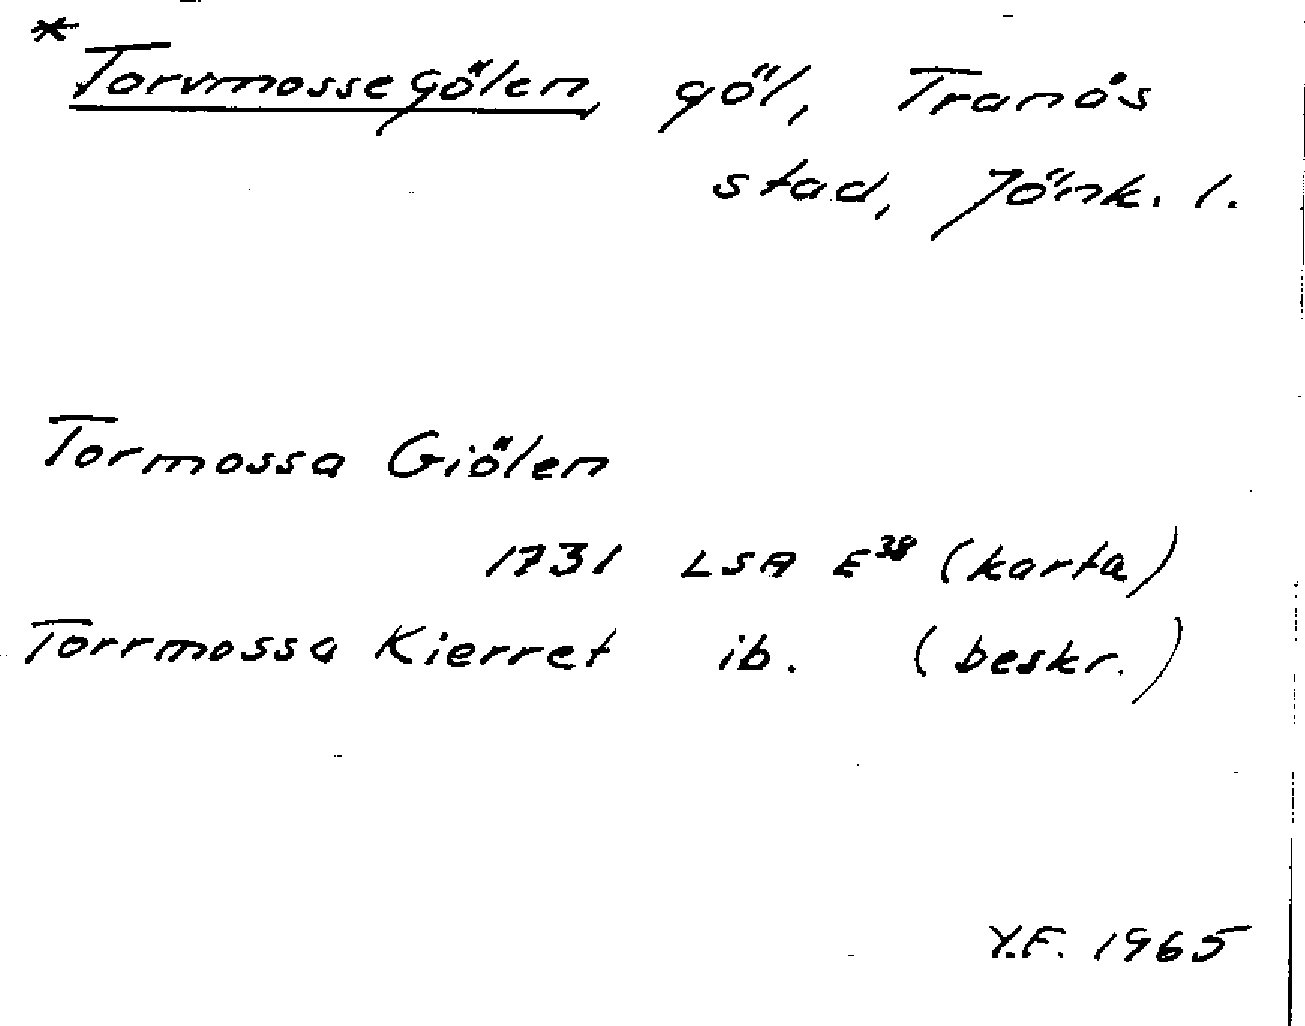 * Torvmossegölen, göl, Tranås
stad, Jönk. l.
Tormossa Giölen
1731 LSA E³⁸ (karta)
Torrmossa Kierret ib. (beskr.)
Y.F. 1965